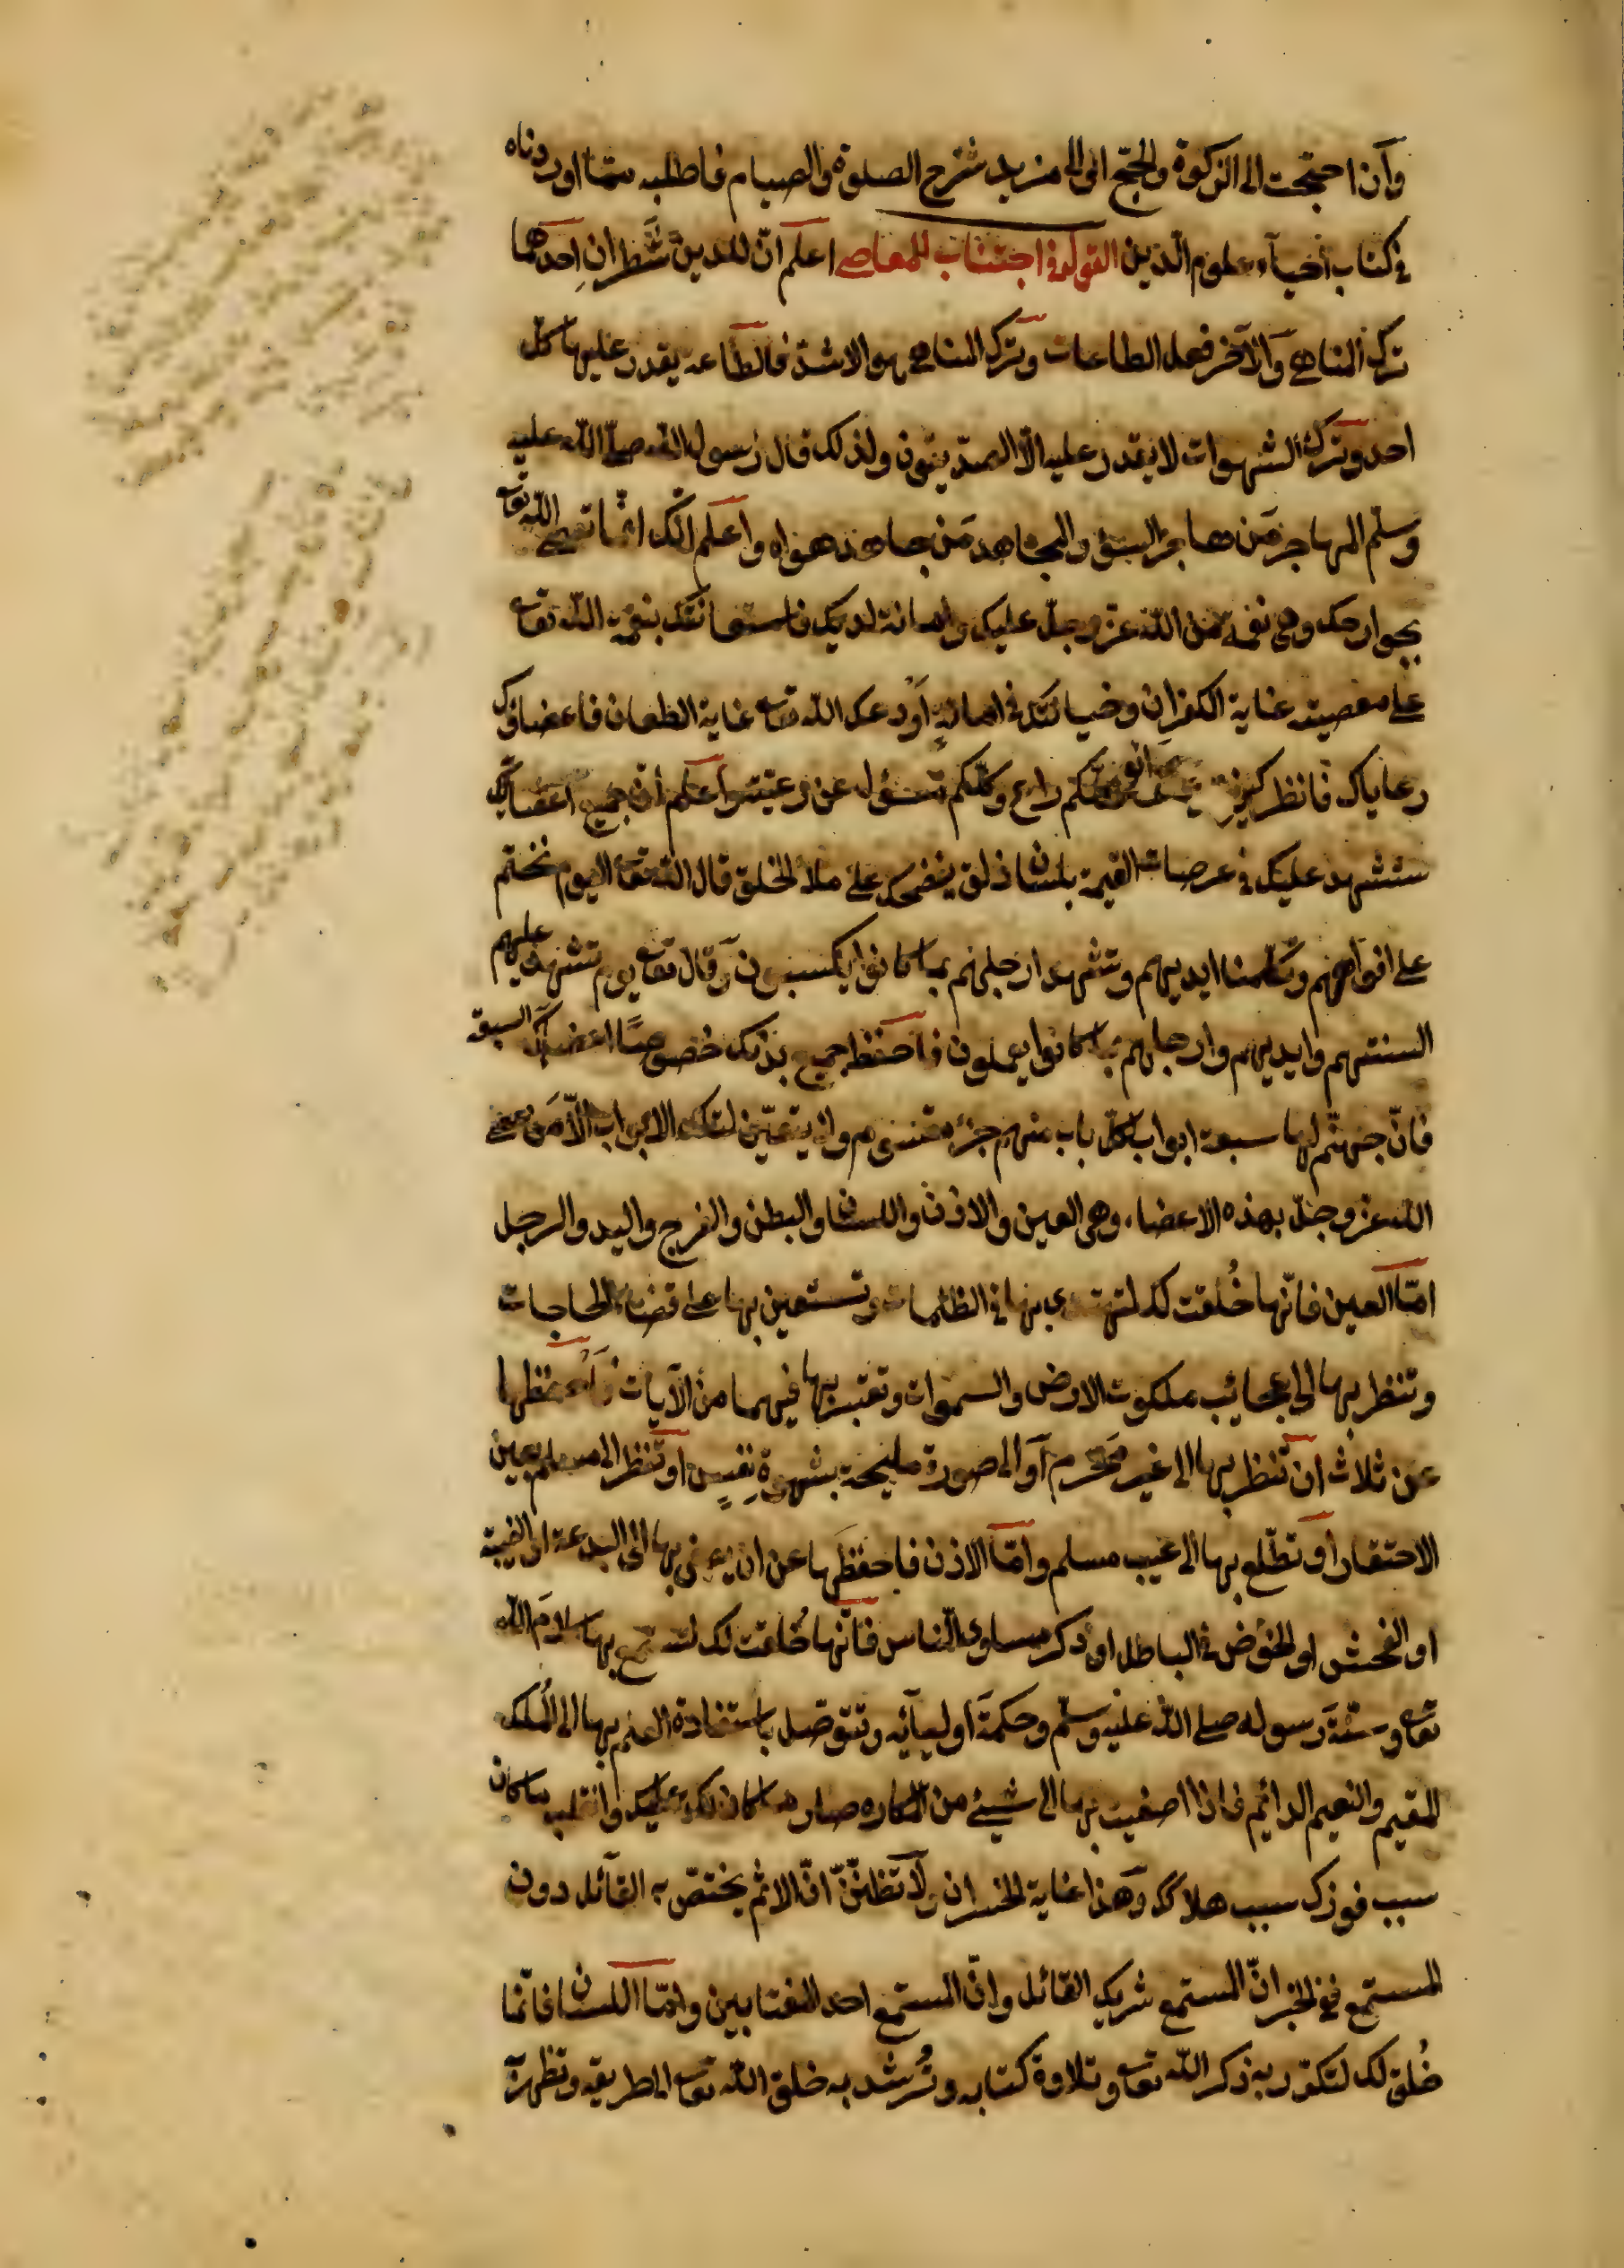 وان احتجت الى الزكوة والحج او الى مزيد شرح الصلوة والصيام فاطلبه مما اوردناه
في كتاب احياء علوم الدين القول في اجتناب المعاصي اعلم ان للدين شطران احدهما
ترك المناهي والآخر فعل الطاعات وترك المناهي هو الاشد فالطاعة يقدر عليها كل
احد وترك الشهوات لا يقدر عليه الا الصديقون ولذلك قال رسول الله صلى الله عليه
وسلم المهاجر من هاجر السوء والمجاهد من جاهد هواه واعلم انك انما تعصي الله تعا
بجوارحك وهي نعمة من الله عز وجل عليك وامانة لديك فاستعانتك بنعمة الله تعا
على معصيته غاية الكفران وخيانتك في امانة اودعك الله تعا غاية الطغيان فاعضاؤك
رعاياك فانظر كيف فكلكم راع وكلكم مسؤل عن رعيته واعلم ان جميع اعضائك
ستشهد عليك في عرصات القيمة بلسان ذلق يفضحك على ملأ الخلق قال الله تعا اليوم نختم
على افواههم وتكلمنا ايديهم وتشهد ارجلهم بما كانوا يكسبون وقال تعا يوم تشهد عليهم
السنتهم وايديهم وارجلهم بما كانوا يعملون فاحفظ جميع بدنك خصوصا اعضاءك السبعة
فان جهنم لها سبعة ابواب لكل باب منهم جزء مقسوم ولا يتعين لتلك الابواب الا من عصى
الله عز وجل بهذه الاعضاء وهي العين والاذن واللسان والبطن والفرج واليد والرجل
اما العين فانها خلقت لك لتهتدي بها في الظلمات وتستعين بها على قضاء الحاجات
وتنظر بها الى عجائب ملكوت الارض والسموات وتعتبر بها فيهما من الآيات فاحفظها
عن ثلاث ان تنظر بها الى غير محرم او الى صورة مليحة بشهوة نفس او تنظر الى مسلم بعين
الاحتقار او تطلع بها الى عيب مسلم واما الاذن فاحفظها عن ان يصغى بها الى البدعة او الغيبة
او الفحش او الخوض في الباطل او ذكر مساوى الناس فانها خلقت لك لتسمع بها كلام الله
تعا وسنة رسوله صلى الله عليه وسلم وحكمة اوليائه وتتوصل باستفادة العلم بها الى الملك
المقيم والنعيم الدائم فاذا اصغيت بها الى شيئ من المكاره صار ما كان لك عليك وانقلب ما كان
سبب فوزك سبب هلاكك وهذا غاية الخسران ولا تظنن ان الاثم يختص به القائل دون
المستمع ففي الخبر ان المستمع شريك القائل وان المستمع احد المغتابين واما اللسان فانما
خلق لك لتكثر به ذكر الله تعا وتلاوة كتابه وترشد به خلق الله تعا الى طريقه وتظهر